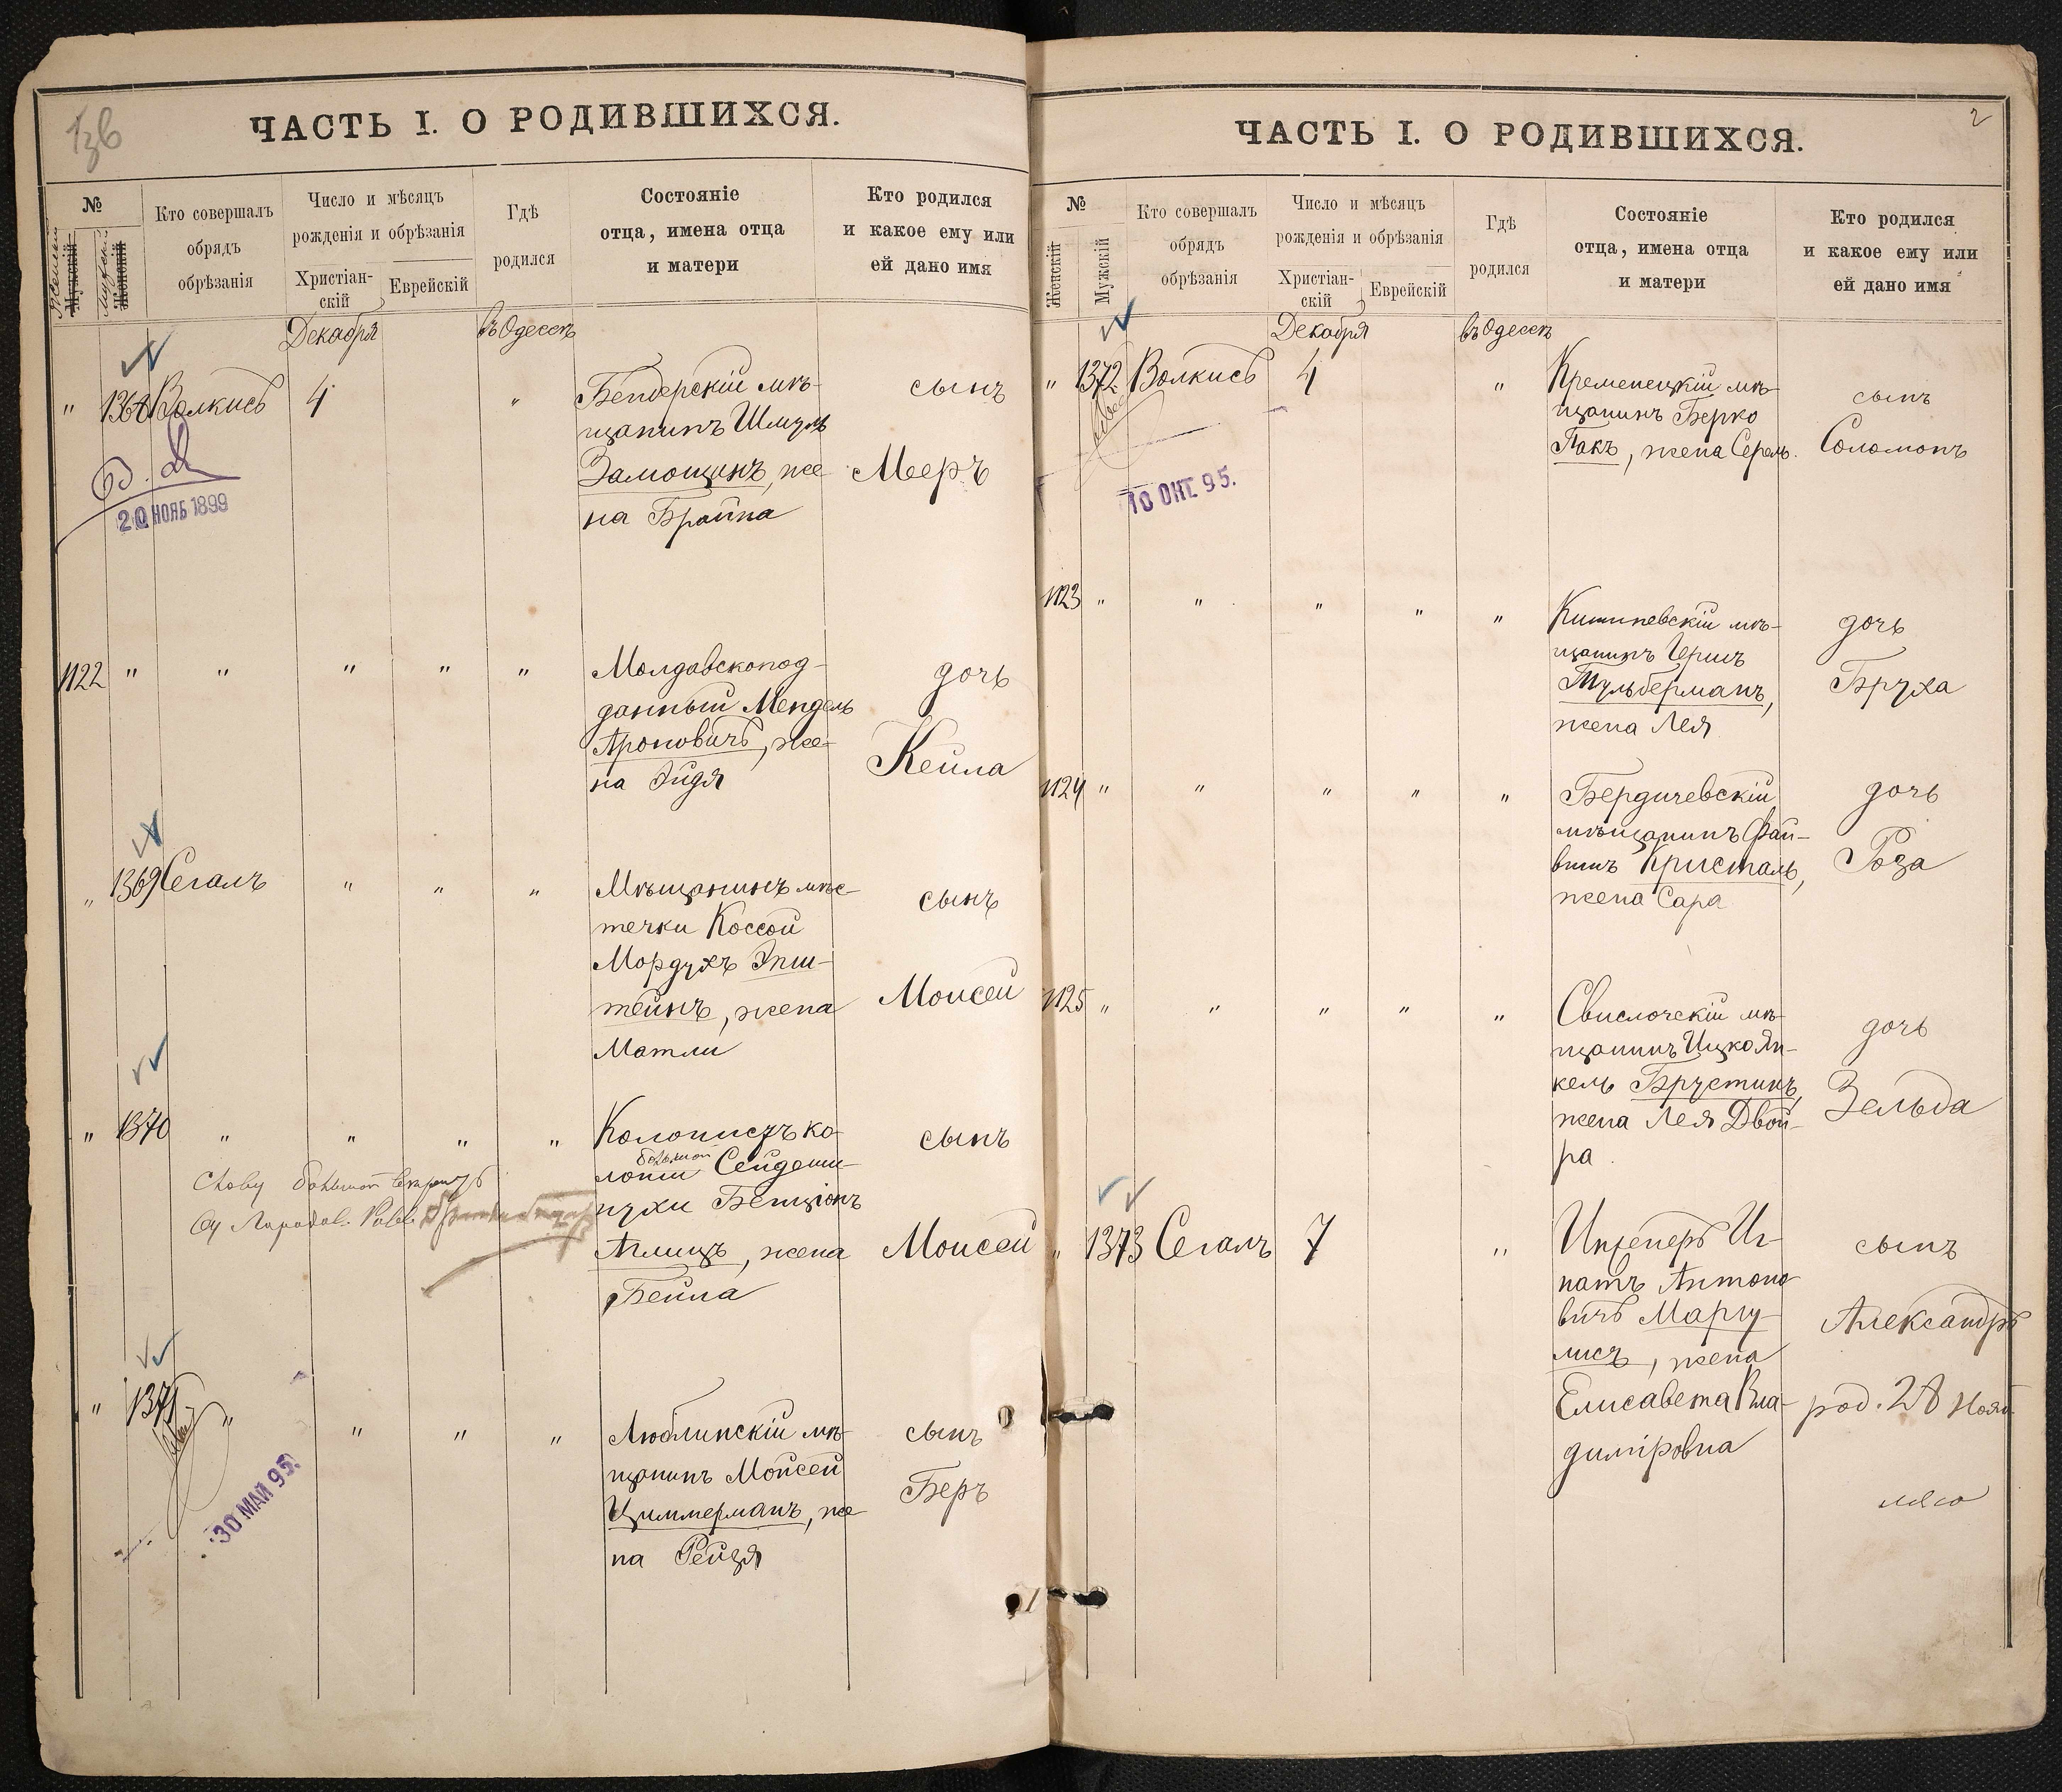 136
ЧАСТЬ I. О РОДИВШИХСЯ.
№
Женскій
Мужскій
Мужскій
Женскій
Кто совершалъ
обрядъ
обрѣзанія
Число и мѣсяцъ
рожденія и обрѣзанія
Христіан-
скій
Еврейскій
Гдѣ
родился
Состояніе
отца, имена отца
и матери
Кто родился
и какое ему или
ей дано имя
Декабря
въ Одессѣ
" 1368 Волкисъ 4 "
Бендерскій мѣ-
щанинъ Шмуль
Замощинъ, же-
на Брайна
сынъ
Мееръ
20 НОЯБ 1899
1122 " " " " "
Молдавскопод-
данный Мендель
Ароновичъ, же-
на Эйдя
дочь
Кейла
" 1369 Сегалъ " " "
Мѣщанинъ мѣс-
течки Коссой
Мордухъ Эпш-
тейнъ, жена
Матли
сынъ
Моисей
" 1370 " " " "
Колонистъ ко-
лоніи Сейдеми-
нухи Бенціонъ
Аглицъ, жена
Бейла
сынъ
Моисей
" 1371 " " " "
Люблинскій мѣ-
щанинъ Мойсей
Циммерманъ, же-
на Рейзя
сынъ
Беръ
30 МАЙ 95.
2
ЧАСТЬ I. О РОДИВШИХСЯ.
№
Женскій
Мужскій
Кто совершалъ
обрядъ
обрѣзанія
Число и мѣсяцъ
рожденія и обрѣзанія
Христіан-
скій
Еврейскій
Гдѣ
родился
Состояніе
отца, имена отца
и матери
Кто родился
и какое ему или
ей дано имя
Декабря
въ Одессѣ
" 1372 Волкисъ 4 "
Кременецкій мѣ-
щанинъ Берко
Пакъ, жена Серель.
сынъ
Соломонъ
10 ОКТ. 95.
1123 " " " " "
Кишиневскій мѣ-
щанинъ Герш
Тульберманъ,
жена Лея
дочь
Бруха
1124 " " " " "
Бердичевскій
мѣщанинъ Фай-
вишъ Кристаль,
жена Сара
дочь
Роза
1125 " " " " "
Свислочскій мѣ-
щанинъ Ицко Ян-
кель Брустинъ,
жена Лея Двой-
ра
дочь
Зельда
" 1373 Сегалъ 7 "
Инженеръ Иг-
натъ Антоно-
вичъ Маргу-
лисъ, жена
Елисавета Вла-
диміровна
сынъ
Александръ
род. 28 Нояб